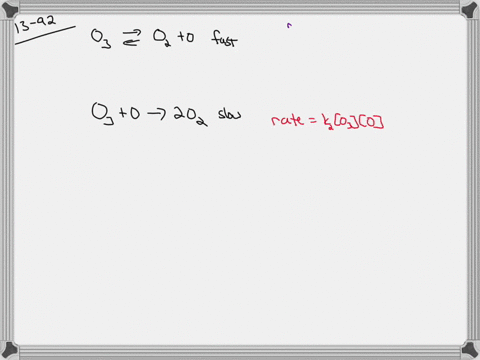 13-92
O₃ ⇌ O₂ + O fast
O₃ + O → 2O₂ slow
rate = k₂[O₃][O]